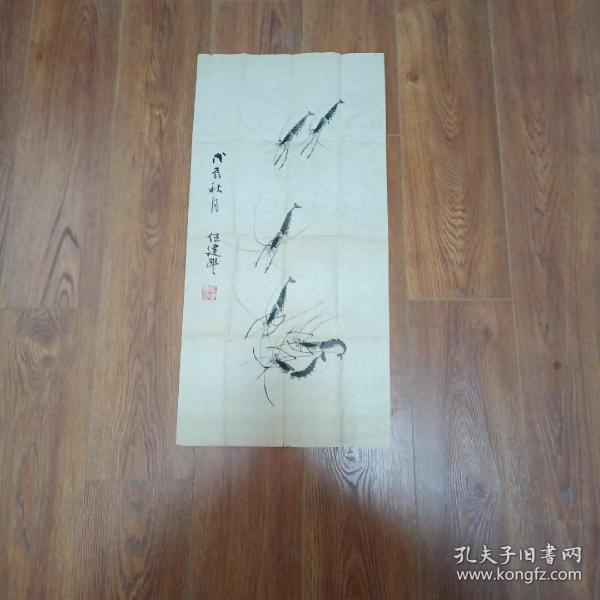 戊辰秋月
伍建
孔夫子旧書网
www.kongfz.com